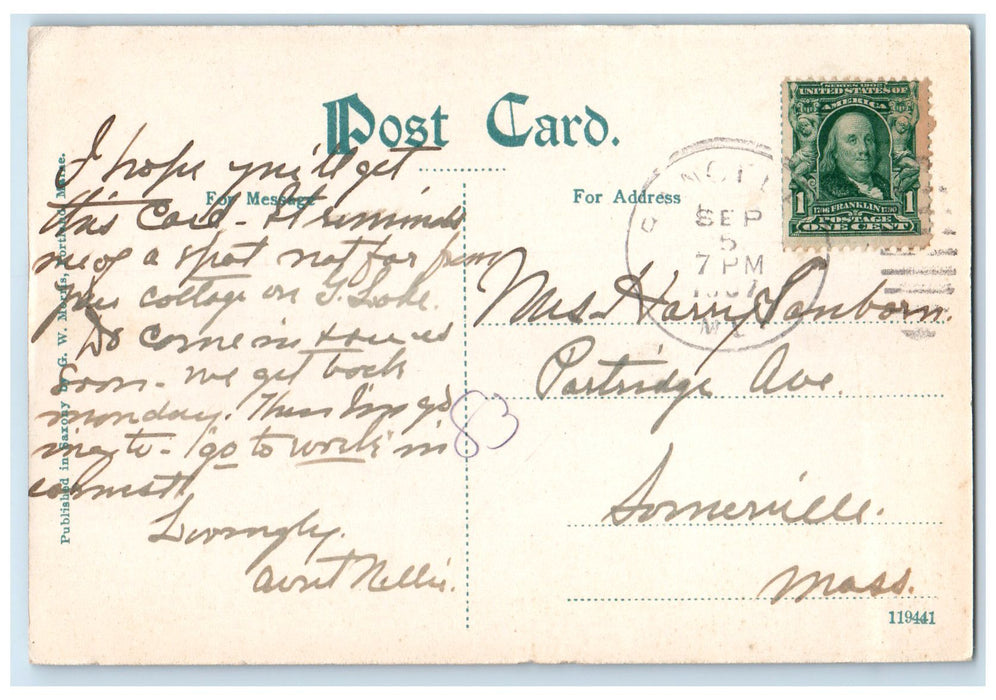 Post Card.
For Message
For Address
I hope you'll get
this Card - It reminds
me of a spot not far from
your cottage on S. Lake.
Do come in & see us
soon - we get back
monday. Then I'm going
me to - go to work in
earnest
Lovingly.
Aunt Nellie.
83
Mrs. Harry Sanborn.
Partridge Ave.
Somerville.
Mass.
119441
Published in Saxony by G. W. Morris, Portland, Maine.
SERIES 1902
UNITED STATES OF
AMERICA
1 1706 FRANKLIN 1790 1
POSTAGE
ONE CENT
SEP
5
7 PM
1907